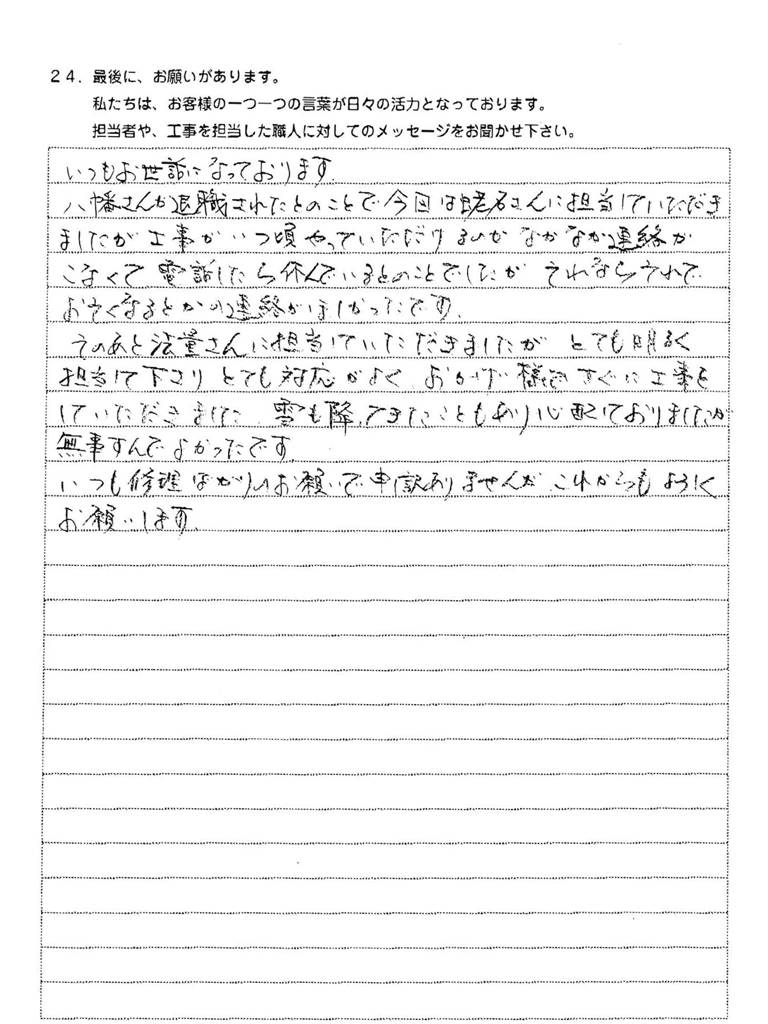 24. 最後に、お願いがあります。
私たちは、お客様の一つ一つの言葉が日々の活力となっております。
担当者や、工事を担当した職人に対してのメッセージをお聞かせ下さい。
いつもお世話になっております。
八幡さんが退職されたとのことで今回は蛯名さんに担当していただき
ましたが工事がいつ頃やっていただけるのかなかなか連絡が
こなくて電話したら休んでいるとのことでしたが それならそれで
おそくなるとかの連絡がほしかったです。
そのあと法量さんに担当していただきましたが とても明るく
担当して下さり とても対応がよく おかげ様ですぐに工事を
していただきました。雪も降ってきたこともあり心配しておりましたが
無事すんでよかったです。
いつも修理ばかりのお願いで申し訳ありませんが これからもよろしく
お願いします。